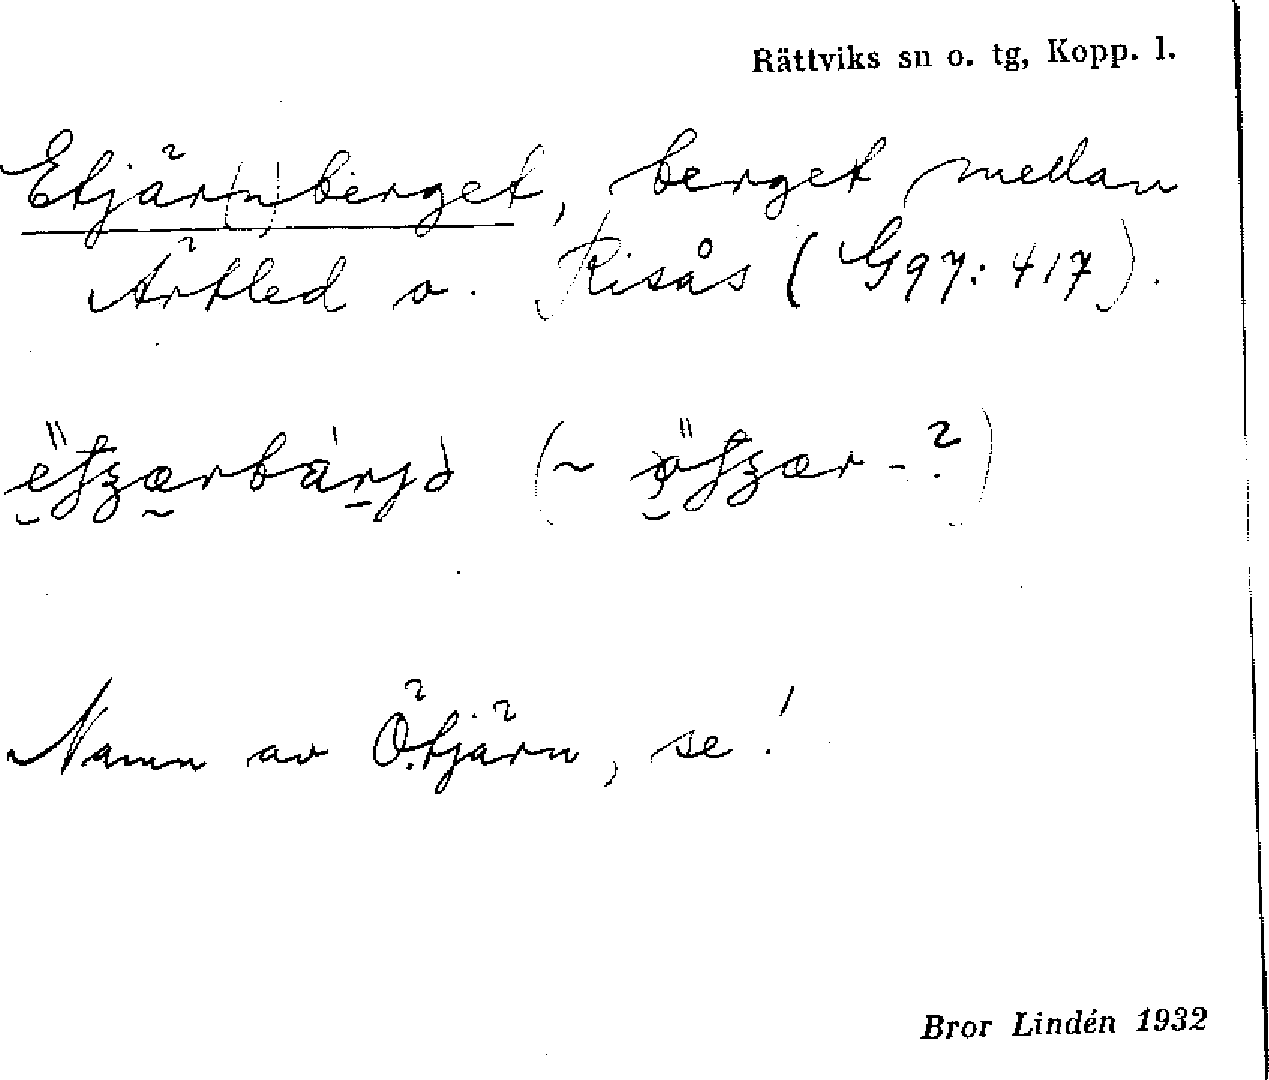 Rättviks sn o. tg, Kopp. l.
Etjär(n)berget, berget mellan
Ärtled o. Risås (G97: 417).
Namn av Ötjärn, se!
Bror Lindén 1932